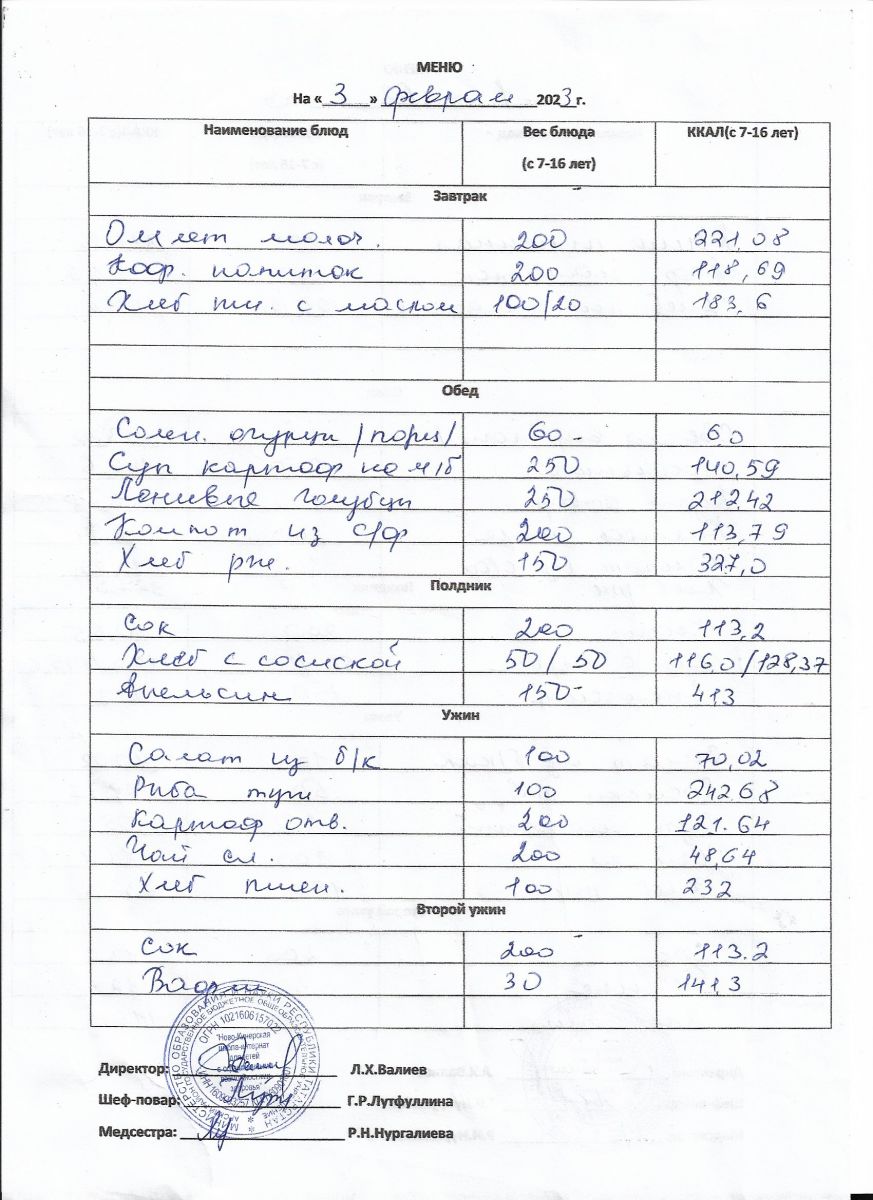 МЕНЮ
На « 3 » феврал 2023 г.
Наименование блюд Вес блюда (с 7-16 лет) ККАЛ(с 7-16 лет)
Завтрак
Омлет молоч. 200 221,08
Коф. напиток 200 118,69
Хлеб пш. с маслом 100/20 183,6
Обед
Солен. огурцы /порц/ 60 6,0
Суп картоф на м/б 250 140,59
Ленивые голубцы 250 212,42
Компот из с/ф 200 113,79
Хлеб рж. 150 327,0
Полдник
Сок 200 113,2
Хлеб с сосиской 50 / 50 116,0/128,37
Апельсин 150 413
Ужин
Салат из б/к 100 70,02
Рыба туш 100 242,68
Картоф отв. 200 121.64
Чай сл. 200 48,64
Хлеб пшен. 100 232
Второй ужин
Сок 200 113.2
Вафли 30 141,3
Директор: Л.Х.Валиев
Шеф-повар: Г.Р.Лутфуллина
Медсестра: Р.Н.Нургалиева
МИНИСТЕРСТВО ОБРАЗОВАНИЯ И НАУКИ РЕСПУБЛИКИ ТАТАРСТАН
ОГРН 1021606157022
"Ново-Кинерская
школа-интернат
для детей